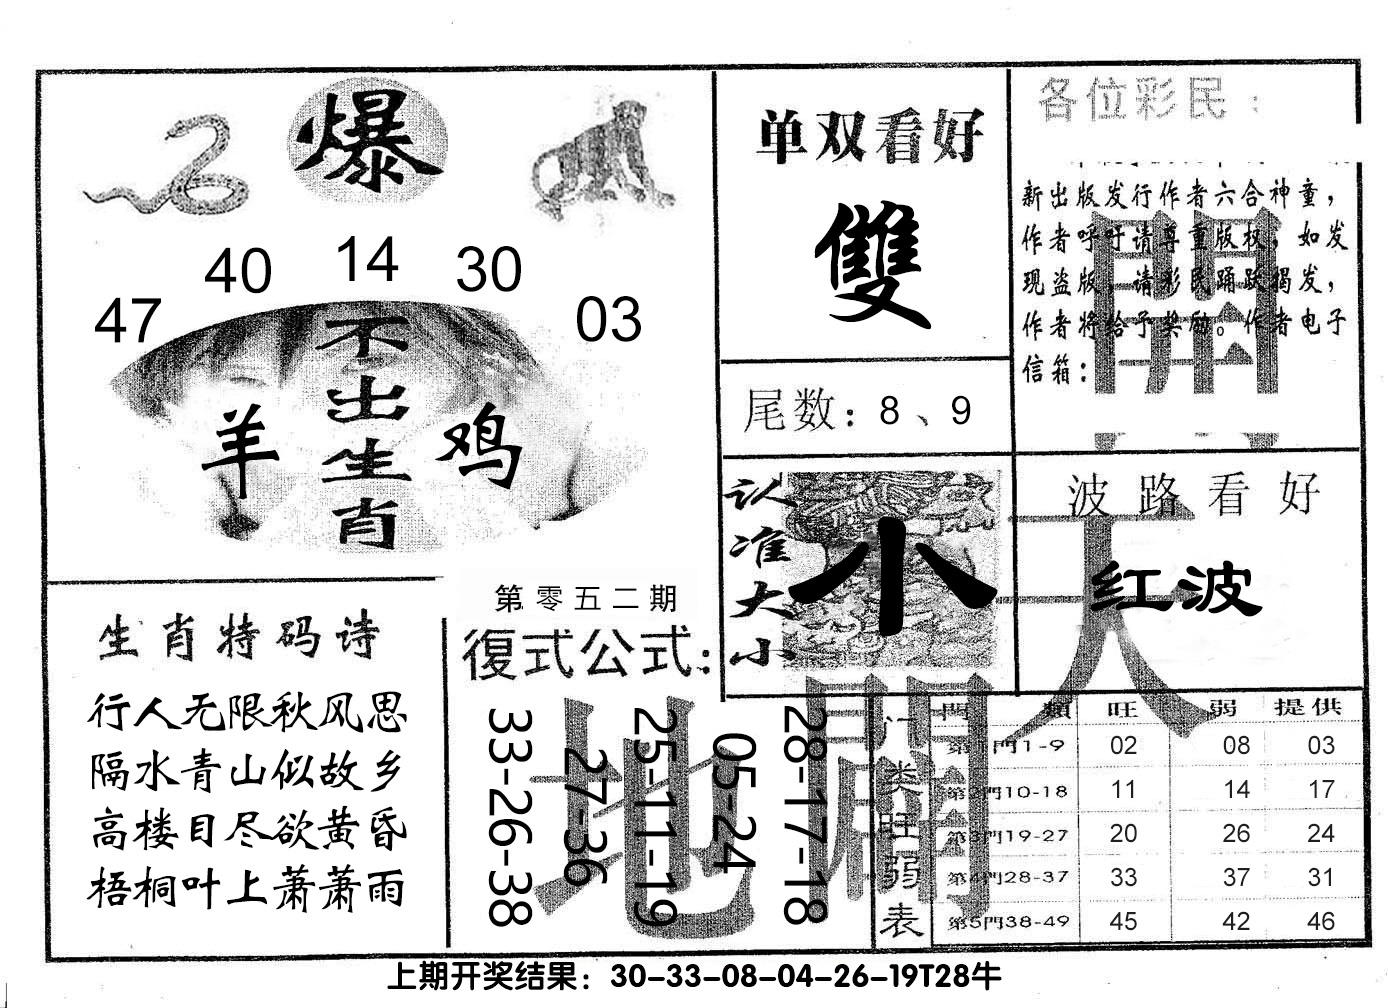 爆
40 14 30
47 03
不出生肖
羊 鸡
单双看好
雙
尾数：8、9
各位彩民：
新出版发行作者六合神童，
作者呼吁请尊重版权，如发
现盗版，请彩民踊跃揭发，
作者将给予奖励。作者电子
信箱：
認准大小
小
波路看好
红波
開天
地開
生肖特码诗
行人无限秋风思
隔水青山似故乡
高楼目尽欲黄昏
梧桐叶上萧萧雨
第零五二期
復式公式：
33-26-38
27-36
25-11-19
05-24
28-17-18
门类旺弱表
門類 旺 弱 提供
第1門1-9 02 08 03
第2門10-18 11 14 17
第3門19-27 20 26 24
第4門28-37 33 37 31
第5門38-49 45 42 46
上期开奖结果：30-33-08-04-26-19T28牛